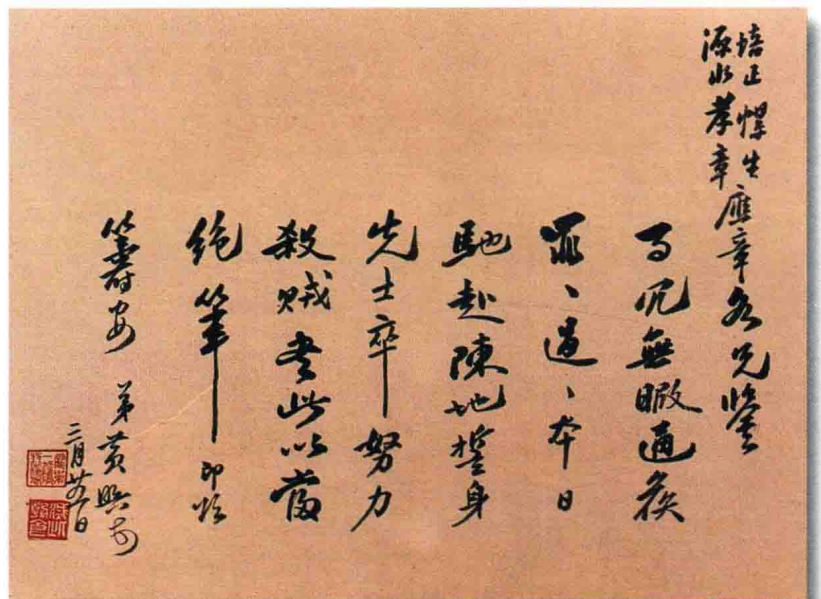 培正懌生應章各兄鑒
源水孝章
事冗無暇通候
罪〻過〻本日
馳赴陣地誓身
先士卒努力
殺賊書此以當
絕筆 即頌
籌安 弟黃興前
三月廿五日